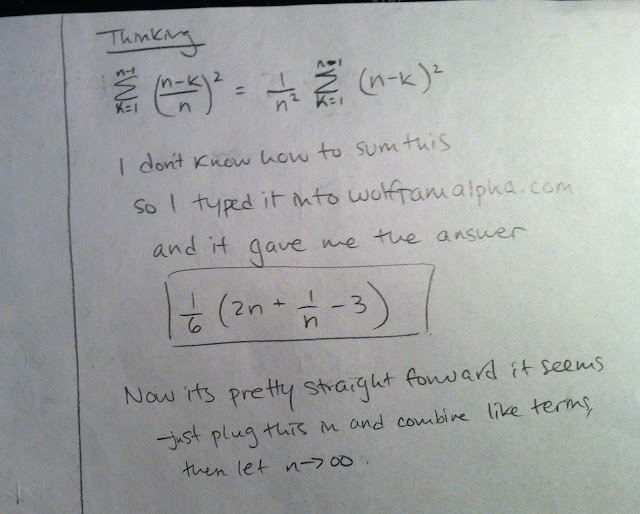 Thinking
∑_{k=1}^{n-1} ((n-k)/n)² = 1/n² ∑_{k=1}^{n-1} (n-k)²
I don't know how to sum this
so I typed it into wolframalpha.com
and it gave me the answer
1/6 (2n + 1/n - 3)
Now its pretty straight forward it seems
-just plug this in and combine like terms,
then let n→∞.